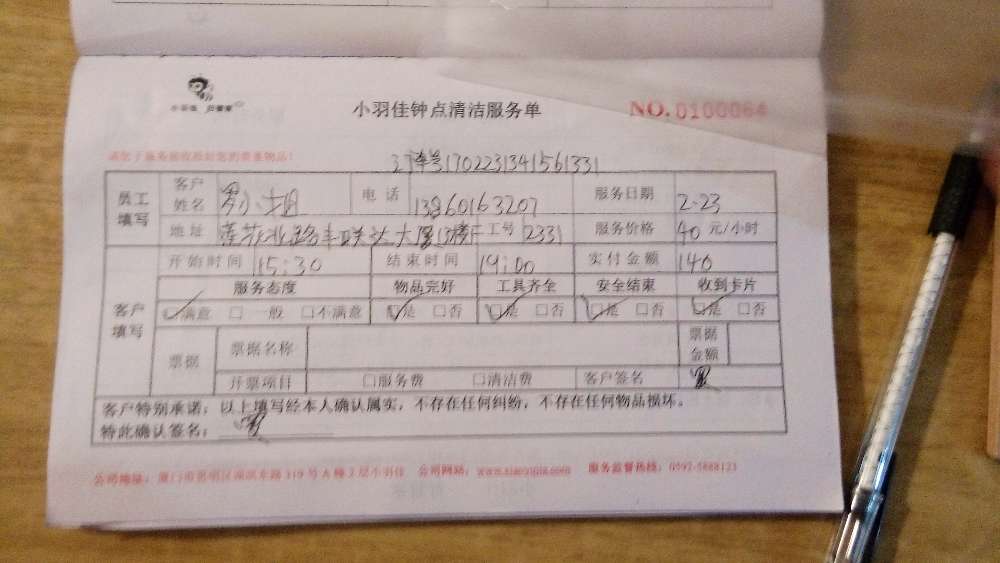 小羽佳 巾管家
小羽佳钟点清洁服务单 NO.0100064
请您于服务前收拾好您的贵重物品！
订单号1702231341561331
员工填写 客户姓名 罗小姐 电话 13860163207 服务日期 2.23
地址 莲花北路丰联达大厦13楼F 工号 2331 服务价格 40 元/小时
客户填写 开始时间 15:30 结束时间 19:00 实付金额 140
服务态度 物品完好 工具齐全 安全结束 收到卡片
☑满意 □一般 □不满意 ☑是 □否 ☑是 □否 ☑是 □否 ☑是 □否
票据 票据名称 票据金额
开票项目 □服务费 □清洁费 客户签名 罗
客户特别承诺：以上填写经本人确认属实，不存在任何纠纷，不存在任何物品损坏。
特此确认签名：罗
公司地址：厦门市思明区湖滨东路319号A幢3层小羽佳 公司网站：www.xiaoyujia.com 服务监督热线：0592-5888123